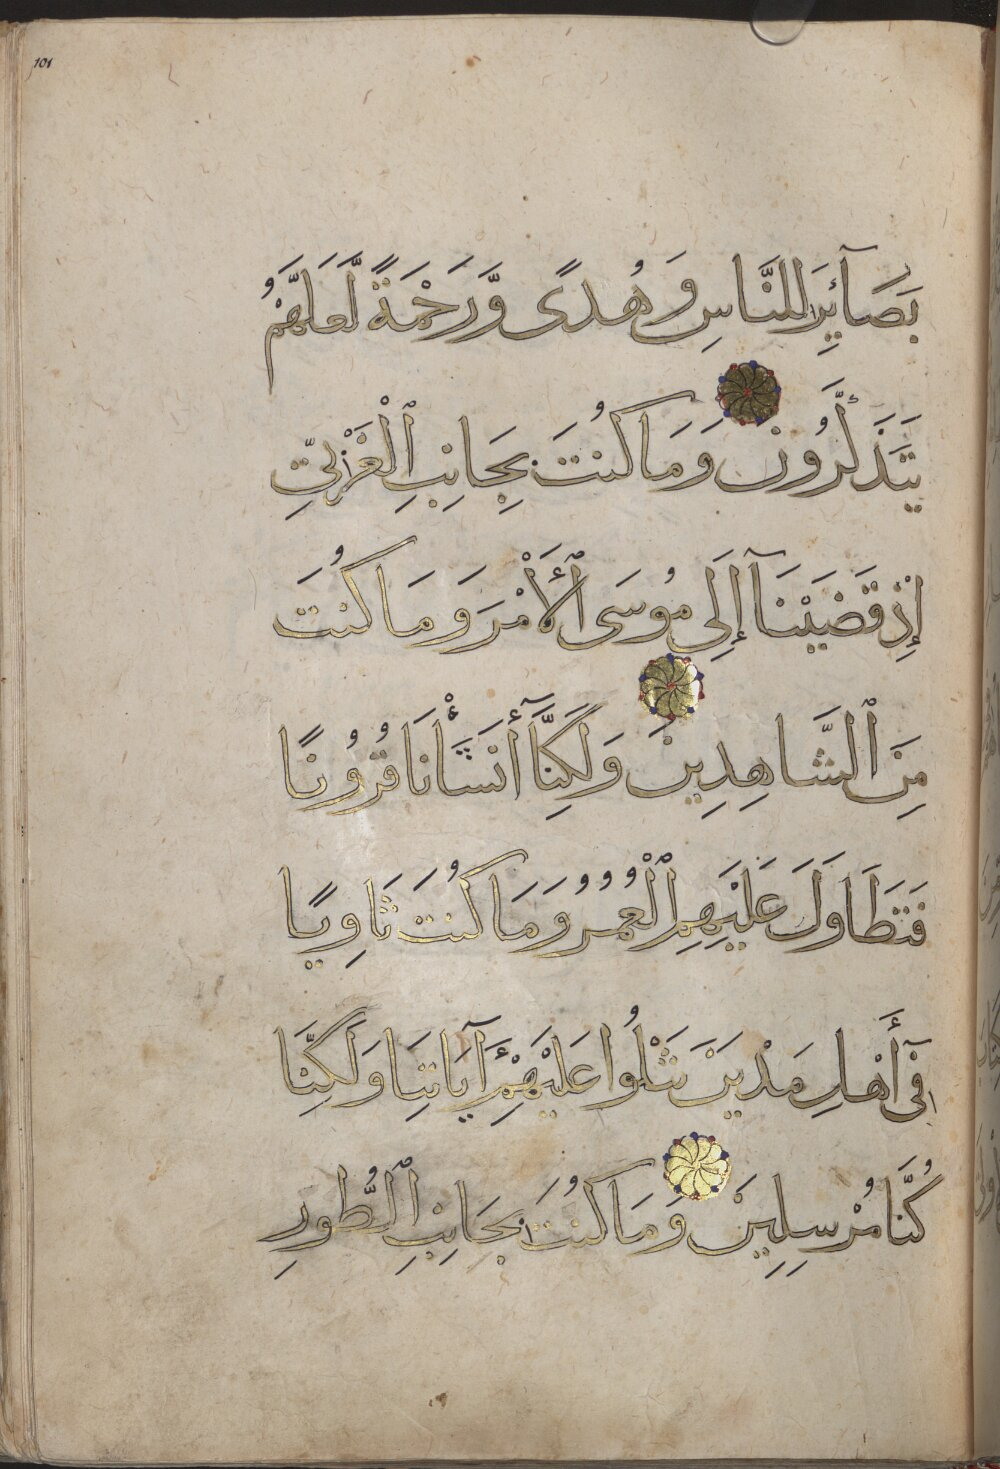 101
بَصَآئِرَ لِلنَّاسِ وَهُدًى وَّرَحْمَةً لَّعَلَّهُمْ
يَتَذَكَّرُونَ وَمَا كُنتَ بِجَانِبِ ٱلْغَرْبِيِّ
إِذْ قَضَيْنَآ إِلَى مُوسَى ٱلْأَمْرَ وَمَا كُنتَ
مِنَ ٱلشَّاهِدِينَ وَلَكِنَّآ أَنشَأْنَا قُرُونًا
فَتَطَاوَلَ عَلَيْهِمُ ٱلْعُمُرُ وَمَا كُنتَ ثَاوِيًا
فِىٓ أَهْلِ مَدْيَنَ تَتْلُوا عَلَيْهِمْ ءَآيَاتِنَا وَلَكِنَّا
كُنَّا مُرْسِلِينَ وَمَا كُنتَ بِجَانِبِ ٱلطُّورِ